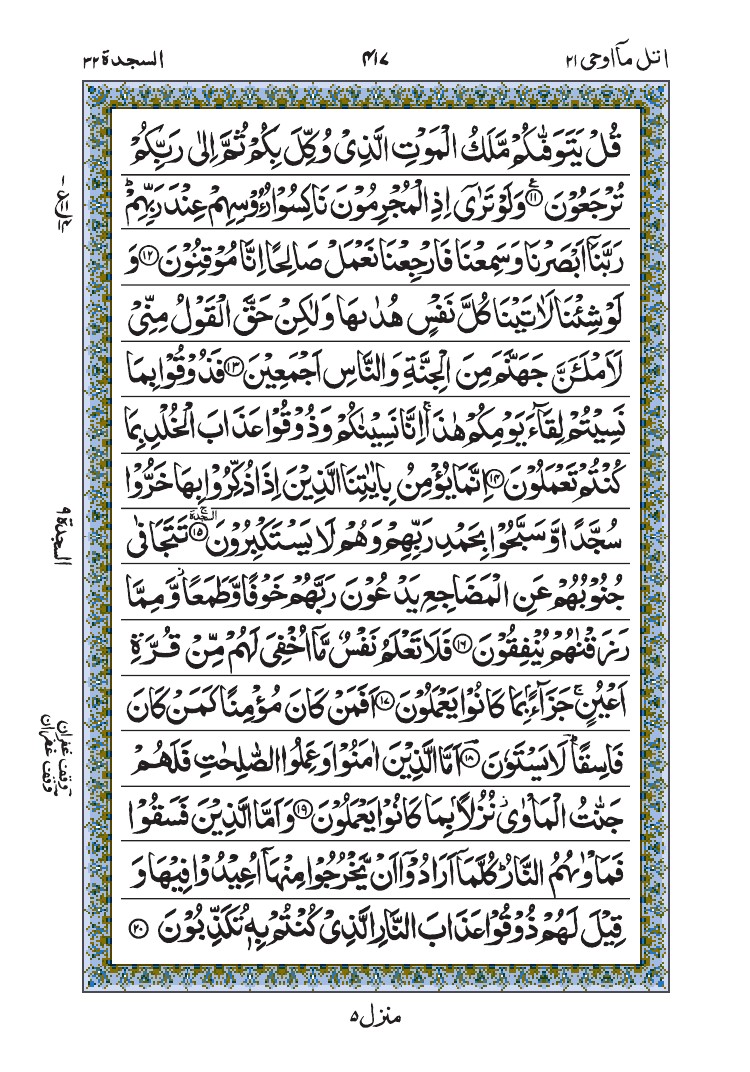 اتل مآاوحی ۲۱
۴۱۷
السجدة ۳۲
قُلْ يَتَوَفّٰىكُمْ مَّلَكُ الْمَوْتِ الَّذِىْ وُكِّلَ بِكُمْ ثُمَّ اِلٰى رَبِّكُمْ
تُرْجَعُوْنَ ۱۱ وَلَوْ تَرٰٓى اِذِ الْمُجْرِمُوْنَ نَاكِسُوْا رُءُوْسِهِمْ عِنْدَ رَبِّهِمْ ؕ
رَبَّنَاۤ اَبْصَرْنَا وَسَمِعْنَا فَارْجِعْنَا نَعْمَلْ صَالِحًا اِنَّا مُوْقِنُوْنَ ۱۲ وَ
لَوْ شِئْنَا لَاٰتَيْنَا كُلَّ نَفْسٍ هُدٰىهَا وَلٰكِنْ حَقَّ الْقَوْلُ مِنِّىْ
لَاَمْلَئَنَّ جَهَنَّمَ مِنَ الْجِنَّةِ وَالنَّاسِ اَجْمَعِيْنَ ۱۳ فَذُوْقُوْا بِمَا
نَسِيْتُمْ لِقَآءَ يَوْمِكُمْ هٰذَا ۚ اِنَّا نَسِيْنٰكُمْ وَذُوْقُوْا عَذَابَ الْخُلْدِ بِمَا
كُنْتُمْ تَعْمَلُوْنَ ۱۴ اِنَّمَا يُؤْمِنُ بِاٰيٰتِنَا الَّذِيْنَ اِذَا ذُكِّرُوْا بِهَا خَرُّوْا
سُجَّدًا وَّسَبَّحُوْا بِحَمْدِ رَبِّهِمْ وَهُمْ لَا يَسْتَكْبِرُوْنَ ۱۵ السجدة تَتَجَافٰى
جُنُوْبُهُمْ عَنِ الْمَضَاجِعِ يَدْعُوْنَ رَبَّهُمْ خَوْفًا وَّطَمَعًا ز وَّمِمَّا
رَزَقْنٰهُمْ يُنْفِقُوْنَ ۱۶ فَلَا تَعْلَمُ نَفْسٌ مَّاۤ اُخْفِىَ لَهُمْ مِّنْ قُرَّةِ
اَعْيُنٍ ۚ جَزَآءًۢ بِمَا كَانُوْا يَعْمَلُوْنَ ۱۷ اَفَمَنْ كَانَ مُؤْمِنًا كَمَنْ كَانَ
فَاسِقًا ؔؕ لَا يَسْتَوٗنَ ۱۸ اَمَّا الَّذِيْنَ اٰمَنُوْا وَعَمِلُوا الصّٰلِحٰتِ فَلَهُمْ
جَنّٰتُ الْمَاْوٰى ز نُزُلًاۢ بِمَا كَانُوْا يَعْمَلُوْنَ ۱۹ وَاَمَّا الَّذِيْنَ فَسَقُوْا
فَمَاْوٰىهُمُ النَّارُ ؕ كُلَّمَاۤ اَرَادُوْۤا اَنْ يَّخْرُجُوْا مِنْهَاۤ اُعِيْدُوْا فِيْهَا وَ
قِيْلَ لَهُمْ ذُوْقُوْا عَذَابَ النَّارِ الَّذِىْ كُنْتُمْ بِهٖ تُكَذِّبُوْنَ ۲۰
السجدة ۹
وقف غفران
وقف غفران
منزل ۵